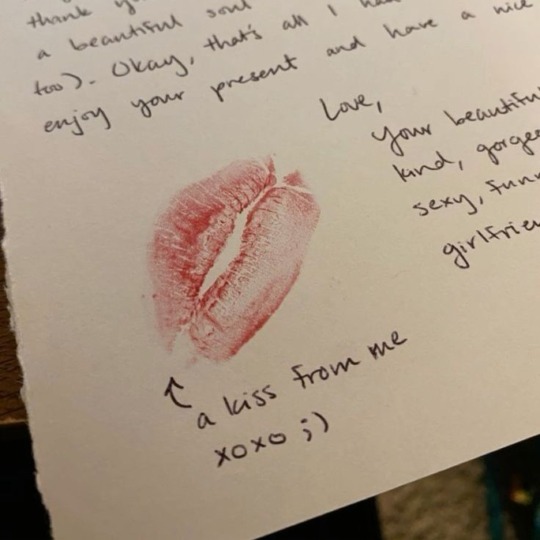 thank
a beautiful soul
too). Okay, that's all I
enjoy your present and have a nice
Love,
Your beautiful
kind,
sexy,
↑
a kiss from me
xoxo ;)